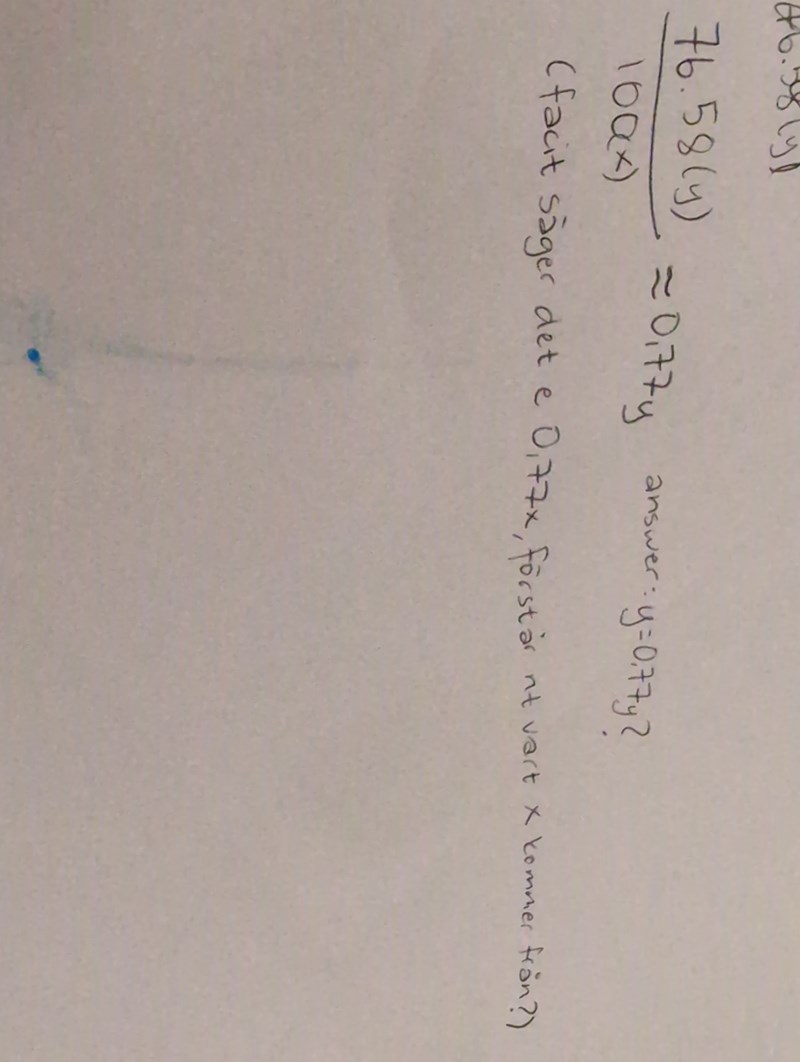 76.58(y)
76.58(y) ≈ 0,77y answer: y=0,77y?
100(x)
(facit säger det e 0,77x, förstår nt vart x kommer från?)